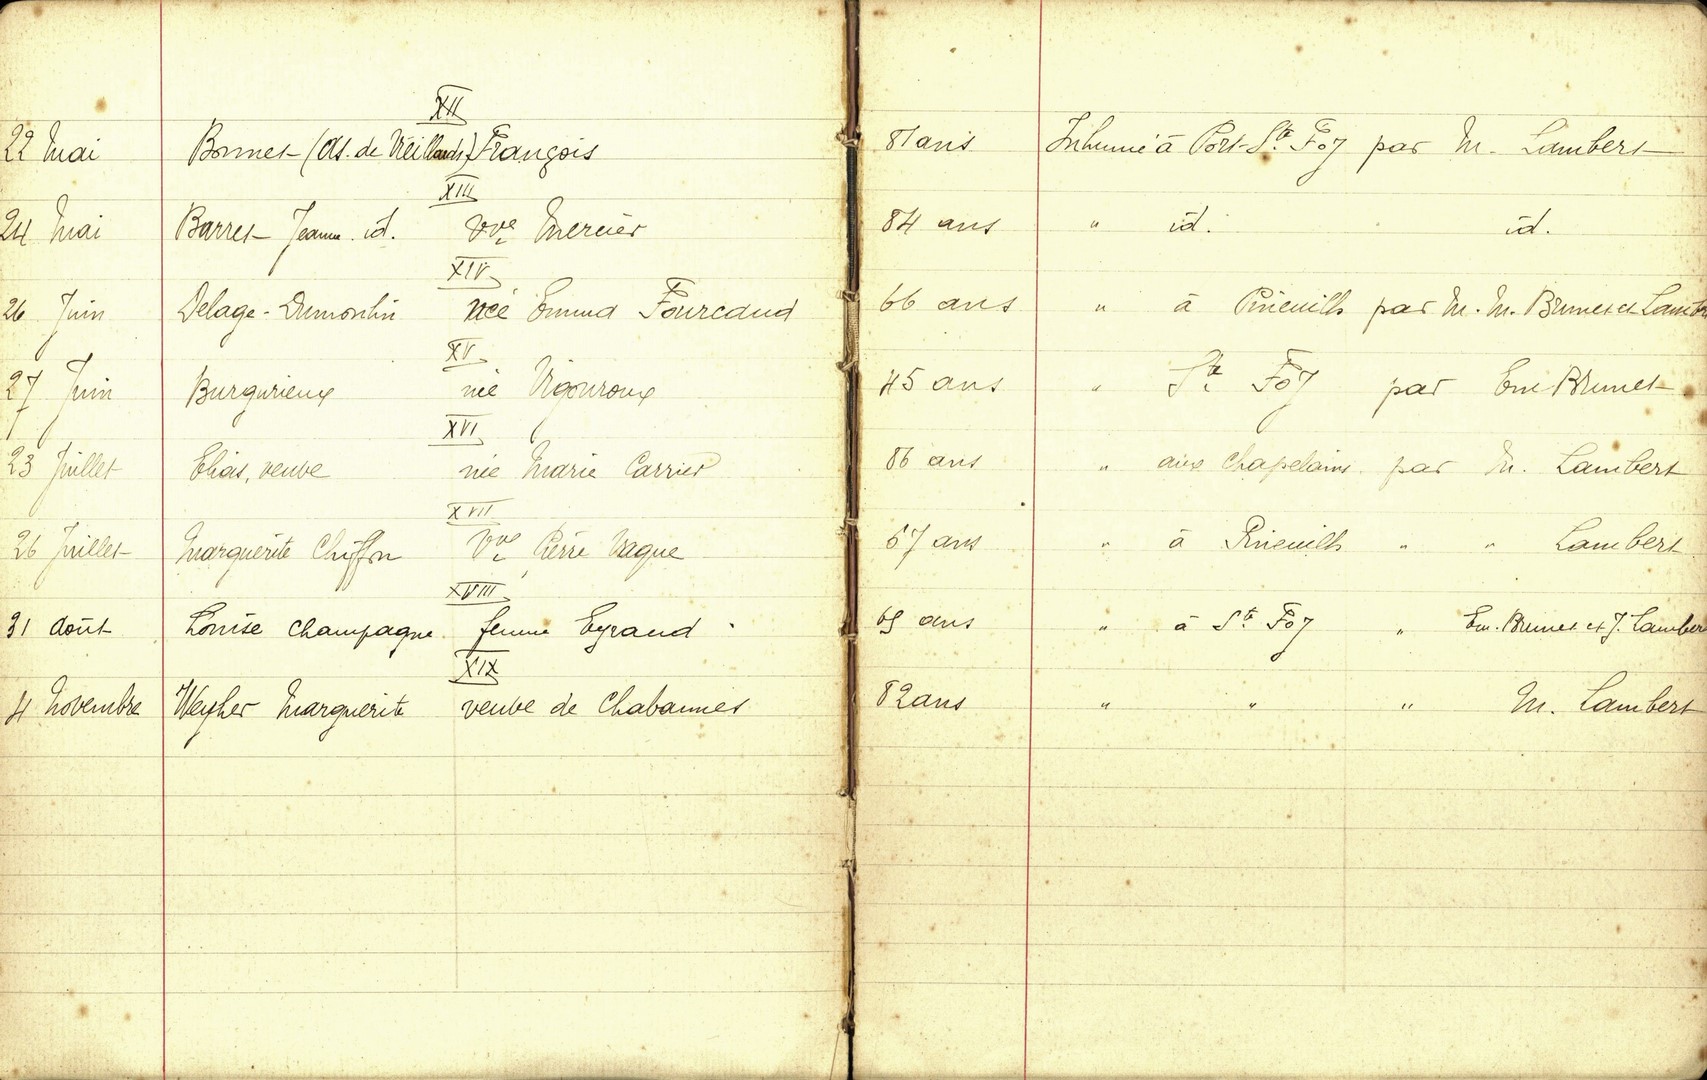 XII
22 Mai Bonnet (As. de Vieillards) François 81 ans Inhumé à Port-Ste Foy par M. Lambert
XIII
24 Mai Barret Jeanne id. Vve Mercier 84 ans " id. id.
XIV
26 Juin Delage-Dumoulin née Emma Fourcaud 66 ans " à Pineuilh par M. M. Brunet et Lambert
XV
27 Juin Burgurieux née Vigouroux 45 ans " Ste Foy par Em Brunet
XVI
23 Juillet Elias, veuve née Marie Carrier 86 ans " aux Chapelains par M. Lambert
XVII
26 Juillet Marguerite Chiffon Vve Pierre Vague 67 ans " à Pineuilh " " Lambert
XVIII
31 août Louise Champagne femme Eyraud 69 ans " à Ste Foy " Em. Brunet et J. Lambert
XIX
4 Novembre Weyher Marguerite veuve de Chabannes 82 ans " " " M. Lambert